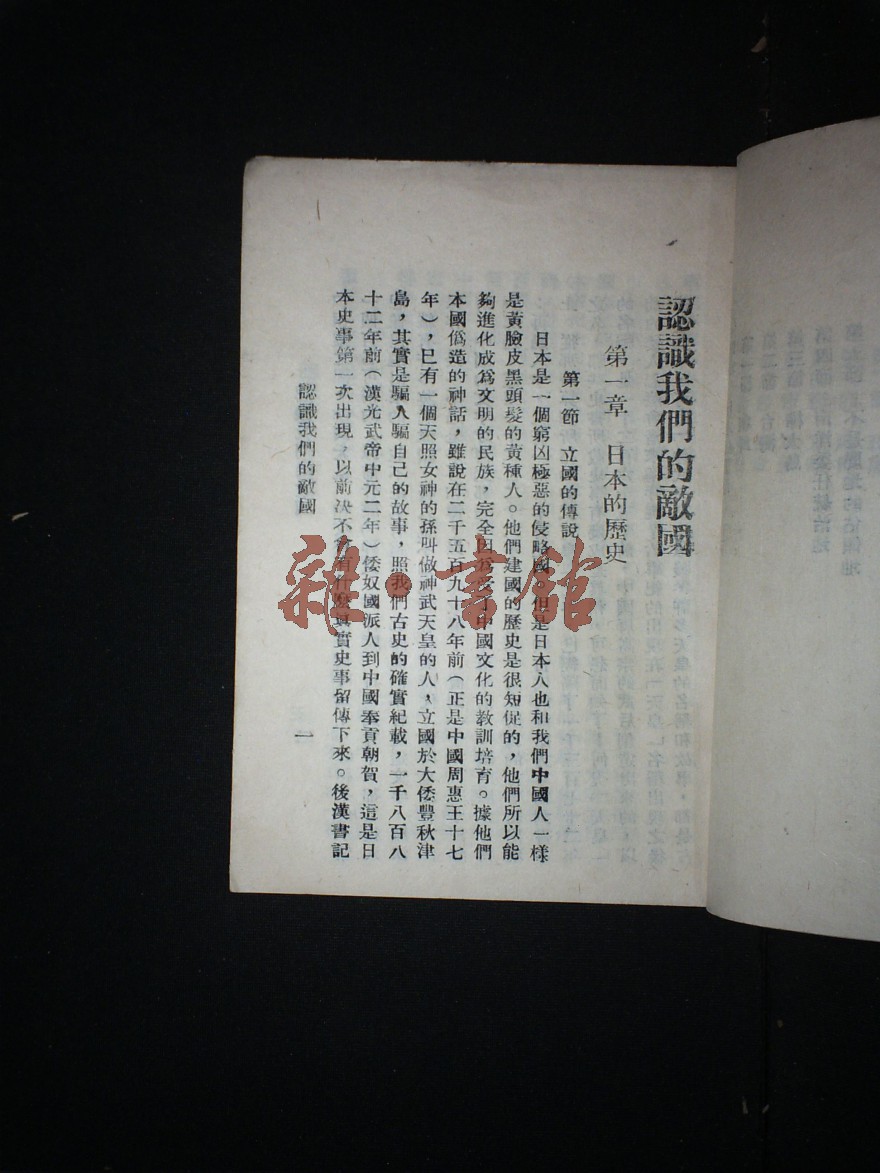 認識我們的敵國
第一章　日本的歷史
第一節　立國的傳說
日本是一個窮凶極惡的侵略國，但是日本人也和我們中國人一樣
是黃臉皮黑頭髮的黃種人。他們建國的歷史是很短促的，他們所以能
夠進化成為文明的民族，完全因為受了中國文化的教訓培育。據他們
本國偽造的神話，雖說在二千五百九十八年前（正是中國周惠王十七
年），已有一個天照女神的孫叫做神武天皇的人，立國於大倭豐秋津
島，其實是騙人騙自己的故事，照我們古史的確實紀載，一千八百八
十二年前（漢光武帝中元二年）倭奴國派人到中國奉貢朝賀，這是日
本史事第一次出現，以前決不會有什麼真實史事留傳下來。後漢書記
認識我們的敵國
一
雜·書館